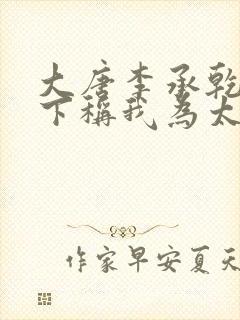 大唐李承乾
下稱我為太
作家早安夏天